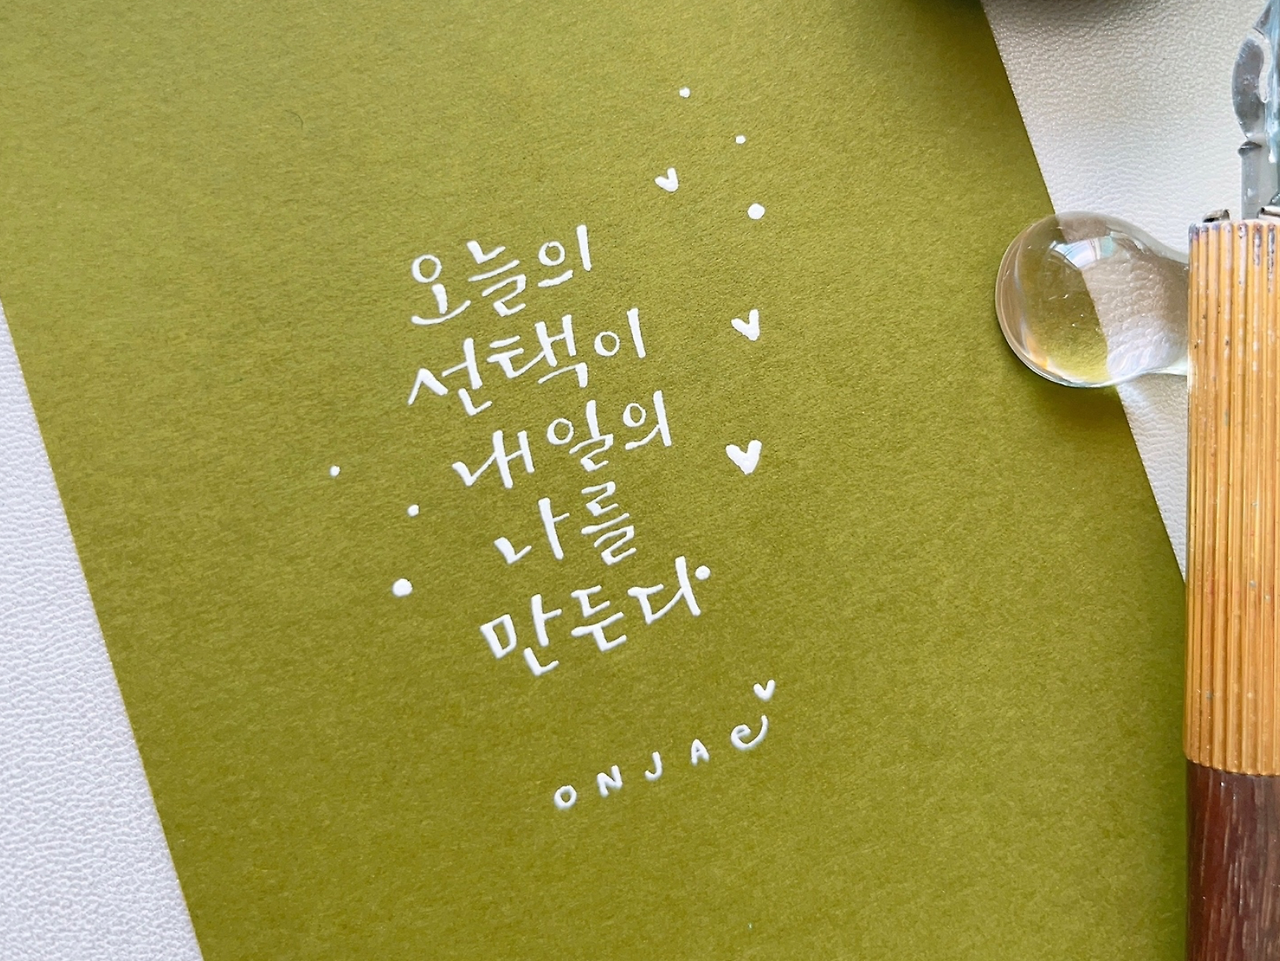 오늘의
선택이
내일의
나를
만든다
ONJAe